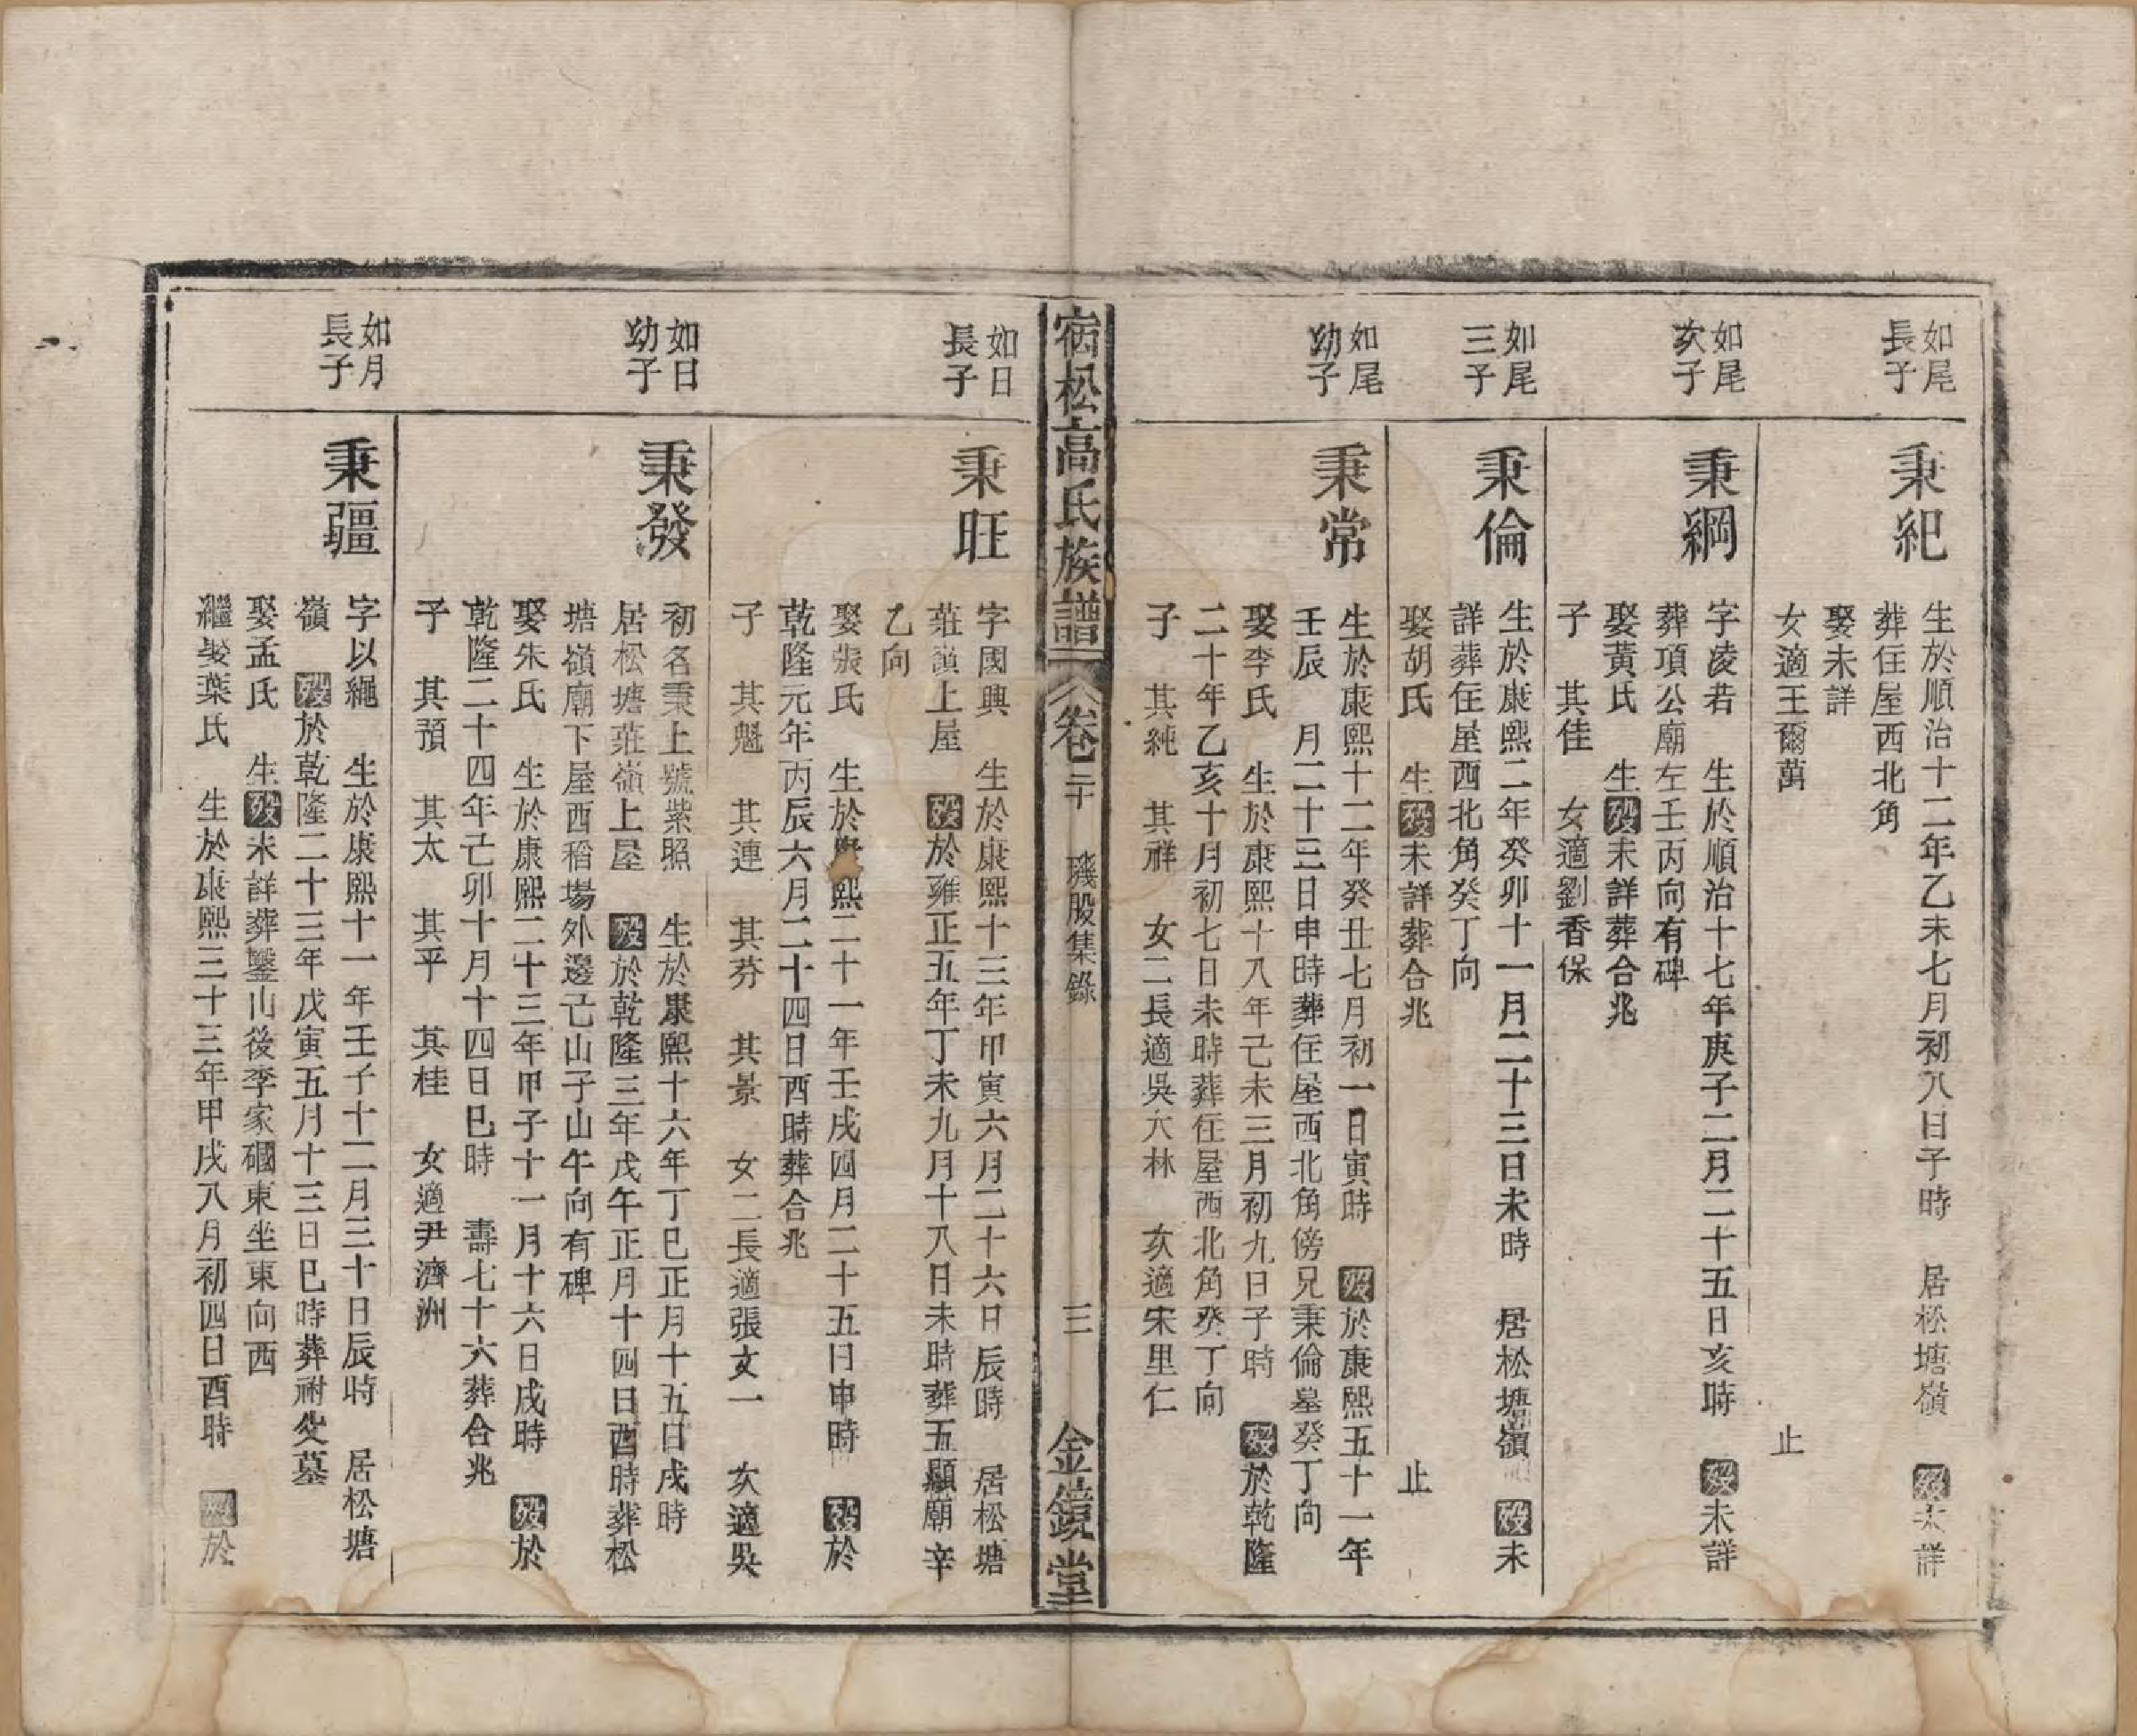 如尾
長子
秉紀
生於順治十二年乙未七月初八日子時　居松塘嶺　歿未詳
葬住屋西北角
娶未詳
女適王爾萬　止
如尾
次子
秉綱
字凌若　生於順治十七年庚子二月二十五日亥時　歿未詳
葬項公廟左壬丙向有碑
娶黃氏　生歿未詳葬合兆
子　其佳　女適劉香保
如尾
三子
秉倫
生於康熙二年癸卯十一月二十三日未時　居松塘嶺　歿未
詳葬住屋西北角癸丁向
娶胡氏　生歿未詳葬合兆　止
如尾
幼子
秉常
生於康熙十二年癸丑七月初一日寅時　歿於康熙五十一年
壬辰　月二十三日申時葬住屋西北角傍兄秉倫墓癸丁向
娶李氏　生於康熙十八年己未三月初九日子時　歿於乾隆
二十年乙亥十月初七日未時葬住屋西北角癸丁向
子　其純　其祥　女二長適吳大林　次適宋里仁
宿松高氏族譜　卷二十　璣股集錄　三　金鏡堂
如日
長子
秉旺
字國興　生於康熙十三年甲寅六月二十六日辰時　居松塘
莊嶺上屋　歿於雍正五年丁未九月十八日未時葬五顯廟辛
乙向
娶張氏　生於康熙二十一年壬戌四月二十五日申時　歿於
乾隆元年丙辰六月二十四日酉時葬合兆
子　其魁　其連　其芬　其景　女二長適張文一　次適吳
如日
幼子
秉發
初名秉上號紫照　生於康熙十六年丁巳正月十五日戌時
居松塘莊嶺上屋　歿於乾隆三年戊午正月十四日酉時葬松
塘嶺廟下屋西稻場外邊己山子山午向有碑
娶朱氏　生於康熙二十三年甲子十一月十六日戌時　歿於
乾隆二十四年己卯十月十四日巳時　壽七十六葬合兆
子　其預　其太　其平　其桂　女適尹濟洲
如月
長子
秉疆
字以繩　生於康熙十一年壬子十二月三十日辰時　居松塘
嶺　歿於乾隆二十三年戊寅五月十三日巳時葬祔父墓
娶孟氏　生歿未詳葬鑿山後李家磵東坐東向西
繼娶葉氏　生於康熙三十三年甲戌八月初四日酉時　歿於